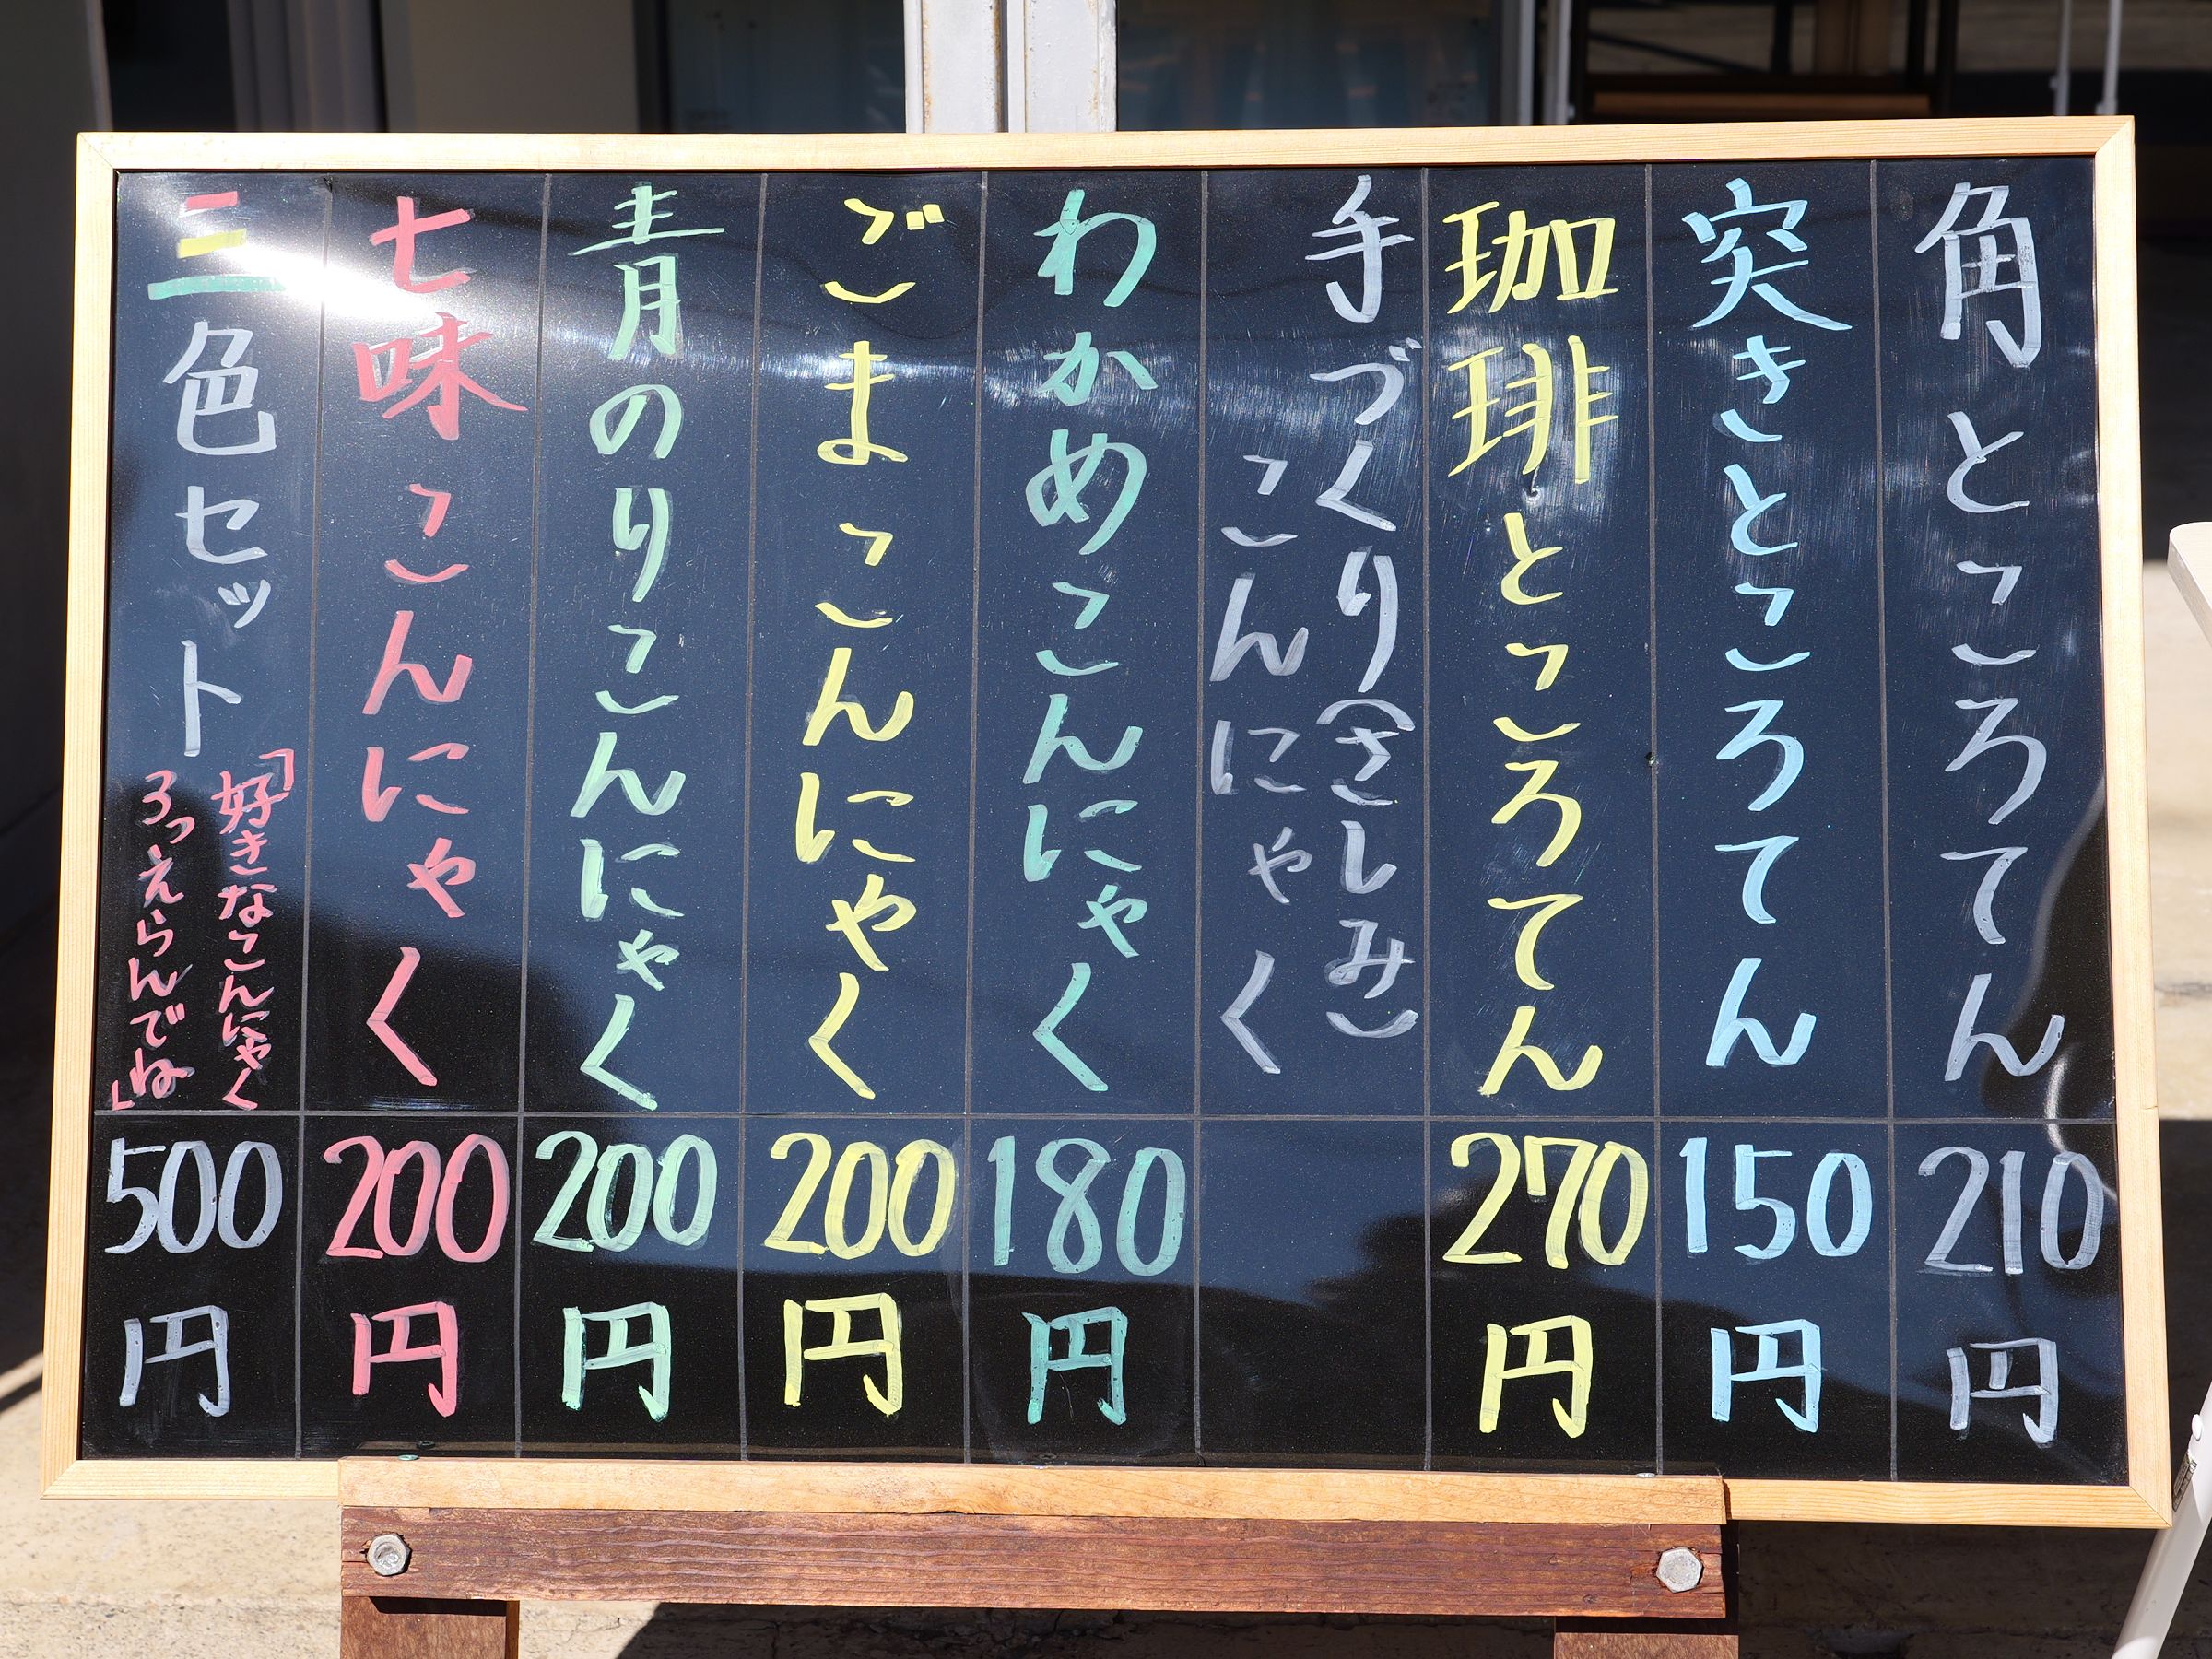 角ところてん
210
円
突きところてん
150
円
珈琲ところてん
270
円
手づくり(さしみ)
こんにゃく
わかめこんにゃく
180
円
ごまこんにゃく
200
円
青のりこんにゃく
200
円
七味こんにゃく
200
円
三色セット
「好きなこんにゃく
3つえらんでね」
500
円